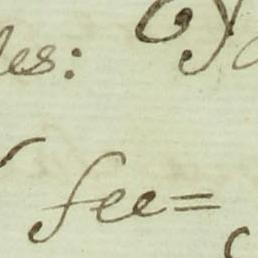 les:
fee=